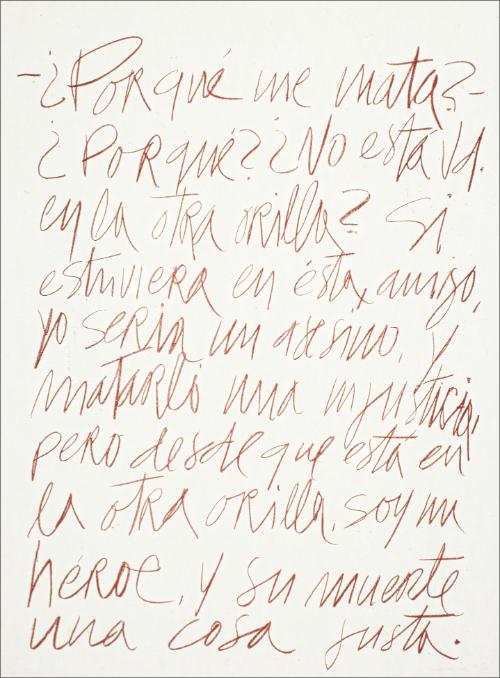 -¿Porqué me mata?-
¿Porqué? ¿No está Vd.
en la otra orilla? Si
estuviera en ésta, amigo,
yo seria un asesino, y
matarlo una injusticia,
pero desde que está en
la otra orilla, soy un
héroe, y su muerte
una cosa justa.